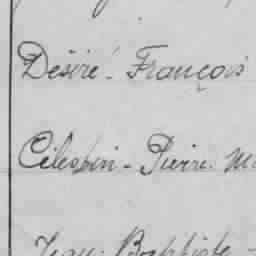 Désiré - François
Célestin - Pierre M
Jean - Baptiste -